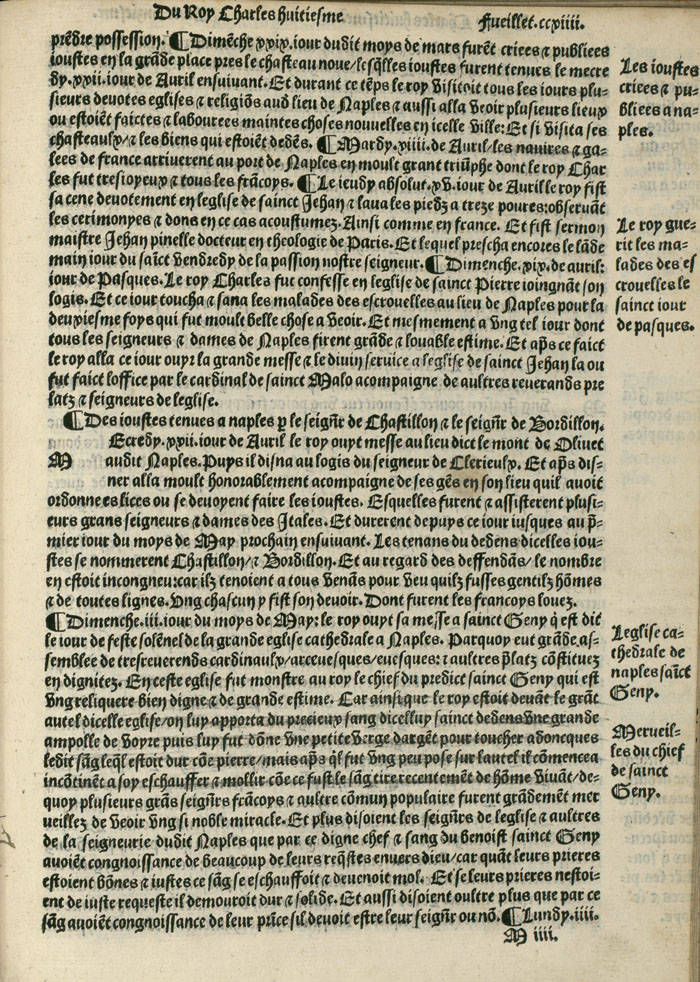 Du Roy Charles huitiesme
Fueillet.ccxiiii.
prẽdre possession. ¶Dimẽche.xxix.iour dudit moys de mars furẽt criees & publiees
ioustes en la grãde place pres le chasteau noue/lesq̃lles ioustes furent tenues le mecre
dy.xxii.iour de Auril ensuiuant. Et durant ce tẽps le roy visitoit tous les iours plu-
sieurs deuotes eglises & religiõs aud̃ lieu de Naples & aussi alla veoir plusieurs lieux
ou estoiẽt faictes & labourees maintes choses nouuelles en icelle ville: Et si visita ses
chasteaulx/& les biens qui estoiẽt dedẽs. ¶Mardy.xiiii.de Auril les nauires & ga-
lees de france arriuerent au port de Naples en moult grant triũphe dont le roy Char
les fut tresioyeux & tous les frãcoys. ¶Le ieudy absolut.xv.iour de Auril le roy fist
sa cene deuotement en leglise de sainct Jehan & laua les piedz a treze poures: obseruãt
les cerimonyes & dons en ce cas acoustumez. Ainsi comme en france. Et fist sermon
maistre Jehan pinelle docteur en theologie de Paris. Et lequel prescha encores le lãde
main iour du saĩct vendredy de la passion nostre seigneur. ¶Dimenche.xix.de auril:
iour de Pasques. Le roy Charles fut confesse en leglise de sainct Pierre ioingnãt son
logis. Et ce iour toucha & sana les malades des escrouelles au lieu de Naples pour la
deuxiesme foys qui fut moult belle chose a veoir. Et mesmement a vng tel iour dont
tous les seigneurs & dames de Naples firent grãde & louable estime. Et ap̃s ce faict
le roy alla ce iour ouyr la grande messe & le diuin seruice a leglise de sainct Jehan la ou
fut faict loffice par le cardinal de sainct Malo acompaigne de aultres reuerands pre
latz & seigneurs de leglise.
¶Des ioustes tenues a naples p̱ le seigñr de Chastillon & le seigñr de Bordillon.
MEcredy.xxii.iour de Auril le roy ouyt messe au lieu dict le mont de Oliuet
audit Naples. Puys il disna au logis du seigneur de Clerieulx. Et ap̃s dis-
ner alla moult honorablement acompaigne de ses gẽs en son lieu quil auoit
ordonne es lices ou se deuoyent faire les ioustes. Esquelles furent & assisterent plusi-
eurs grans seigneurs & dames des Itales. Et durerent depuys ce iour iusques au p̃-
mier iour du moys de May prochain ensuiuant. Les tenans du dedens dicelles iou-
stes se nommerent Chastillon/& Bordillon. Et au regard des deffendãs/le nombre
en estoit incongneu: car ilz tenoient a tous venãs pour veu quilz fusses gentilz hõmes
& de toutes lignes. Vng chascun y fist son deuoir. Dont furent les francoys louez.
¶Dimenche.iii.iour du moys de May: le roy ouyt sa messe a sainct Geny q̃ est dit
le iour de feste solẽnel de la grande eglise cathedrale a Naples. Parquoy eut grãde as-
semblee de tresreuerends cardinaulx/arceuesques/euesques: & aultres p̃latz cõstituez
en dignitez. En ceste eglise fut monstre au roy le chief du predict sainct Geny qui est
vng reliquere bien digne & de grande estime. Car ainsi que le roy estoit deuãt le grãt
autel dicelle eglise/on luy apporta du precieux sang dicelluy sainct dedens vne grande
ampolle de voyre puis luy fut dõne vne petite verge dargẽt pour toucher adoncques
ledit sãg leq̃l estoit dur cõe pierre/mais ap̃s q̃l fut vng peu pose sur lautel il cõmencea
incõtinẽt a soy eschauffer & mollir cõe ce fust le sãg tire recentemẽt de hõme viuãt/de-
quoy plusieurs grãs seigñrs frãcoys & aultre cõmun populaire furent grãdemẽt mer
ueillez de veoir vng si noble miracle. Et plus disoient les seigñrs de leglise & aultres
de la seigneurie dudit Naples que par ce digne chef & sang du benoist sainct Geny
auoiẽt congnoissance de beaucoup de leurs req̃stes enuers dieu/car quãt leurs prieres
estoient bõnes & iustes ce sãg se eschauffoit & deuenoit mol. Et se leurs prieres nestoi-
ent de iuste requeste il demouroit dur & solide. Et aussi disoient oultre plus que par ce
sãg auoiẽt congnoissance de leur prĩce sil deuoit estre leur seigñr ou nõ. ¶Lundy.iiii.
M iiii.
Les ioustes
criees & pu-
bliees a na-
ples.
Le roy gue-
rit les ma-
lades des es
crouelles le
sainct iour
de pasques.
Leglise ca-
thedrale de
naples saĩct
Geny.
Merueil-
les du chief
de sainct
Geny.